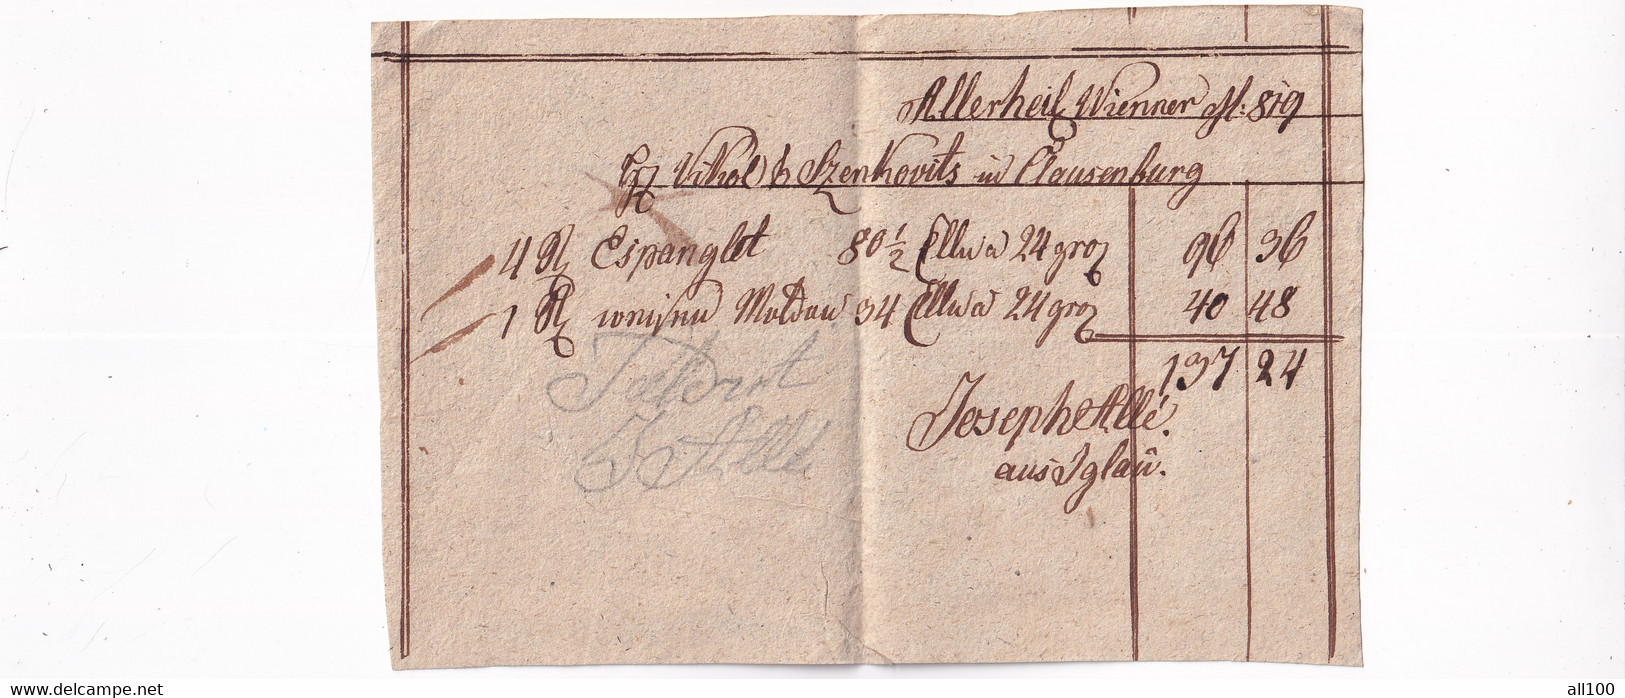 Allerheil Wienner M: 819
Vikol & Szenkovits in Clausenburg
4 St Espanglet 80 1/2 Ellen a 24 gro 96 36
1 St weisen Moldau 34 Ellen a 24 gro 40 48
137 24
Joseph Allé.
aus Iglaû.
J Allé
www.delcampe.net
all100